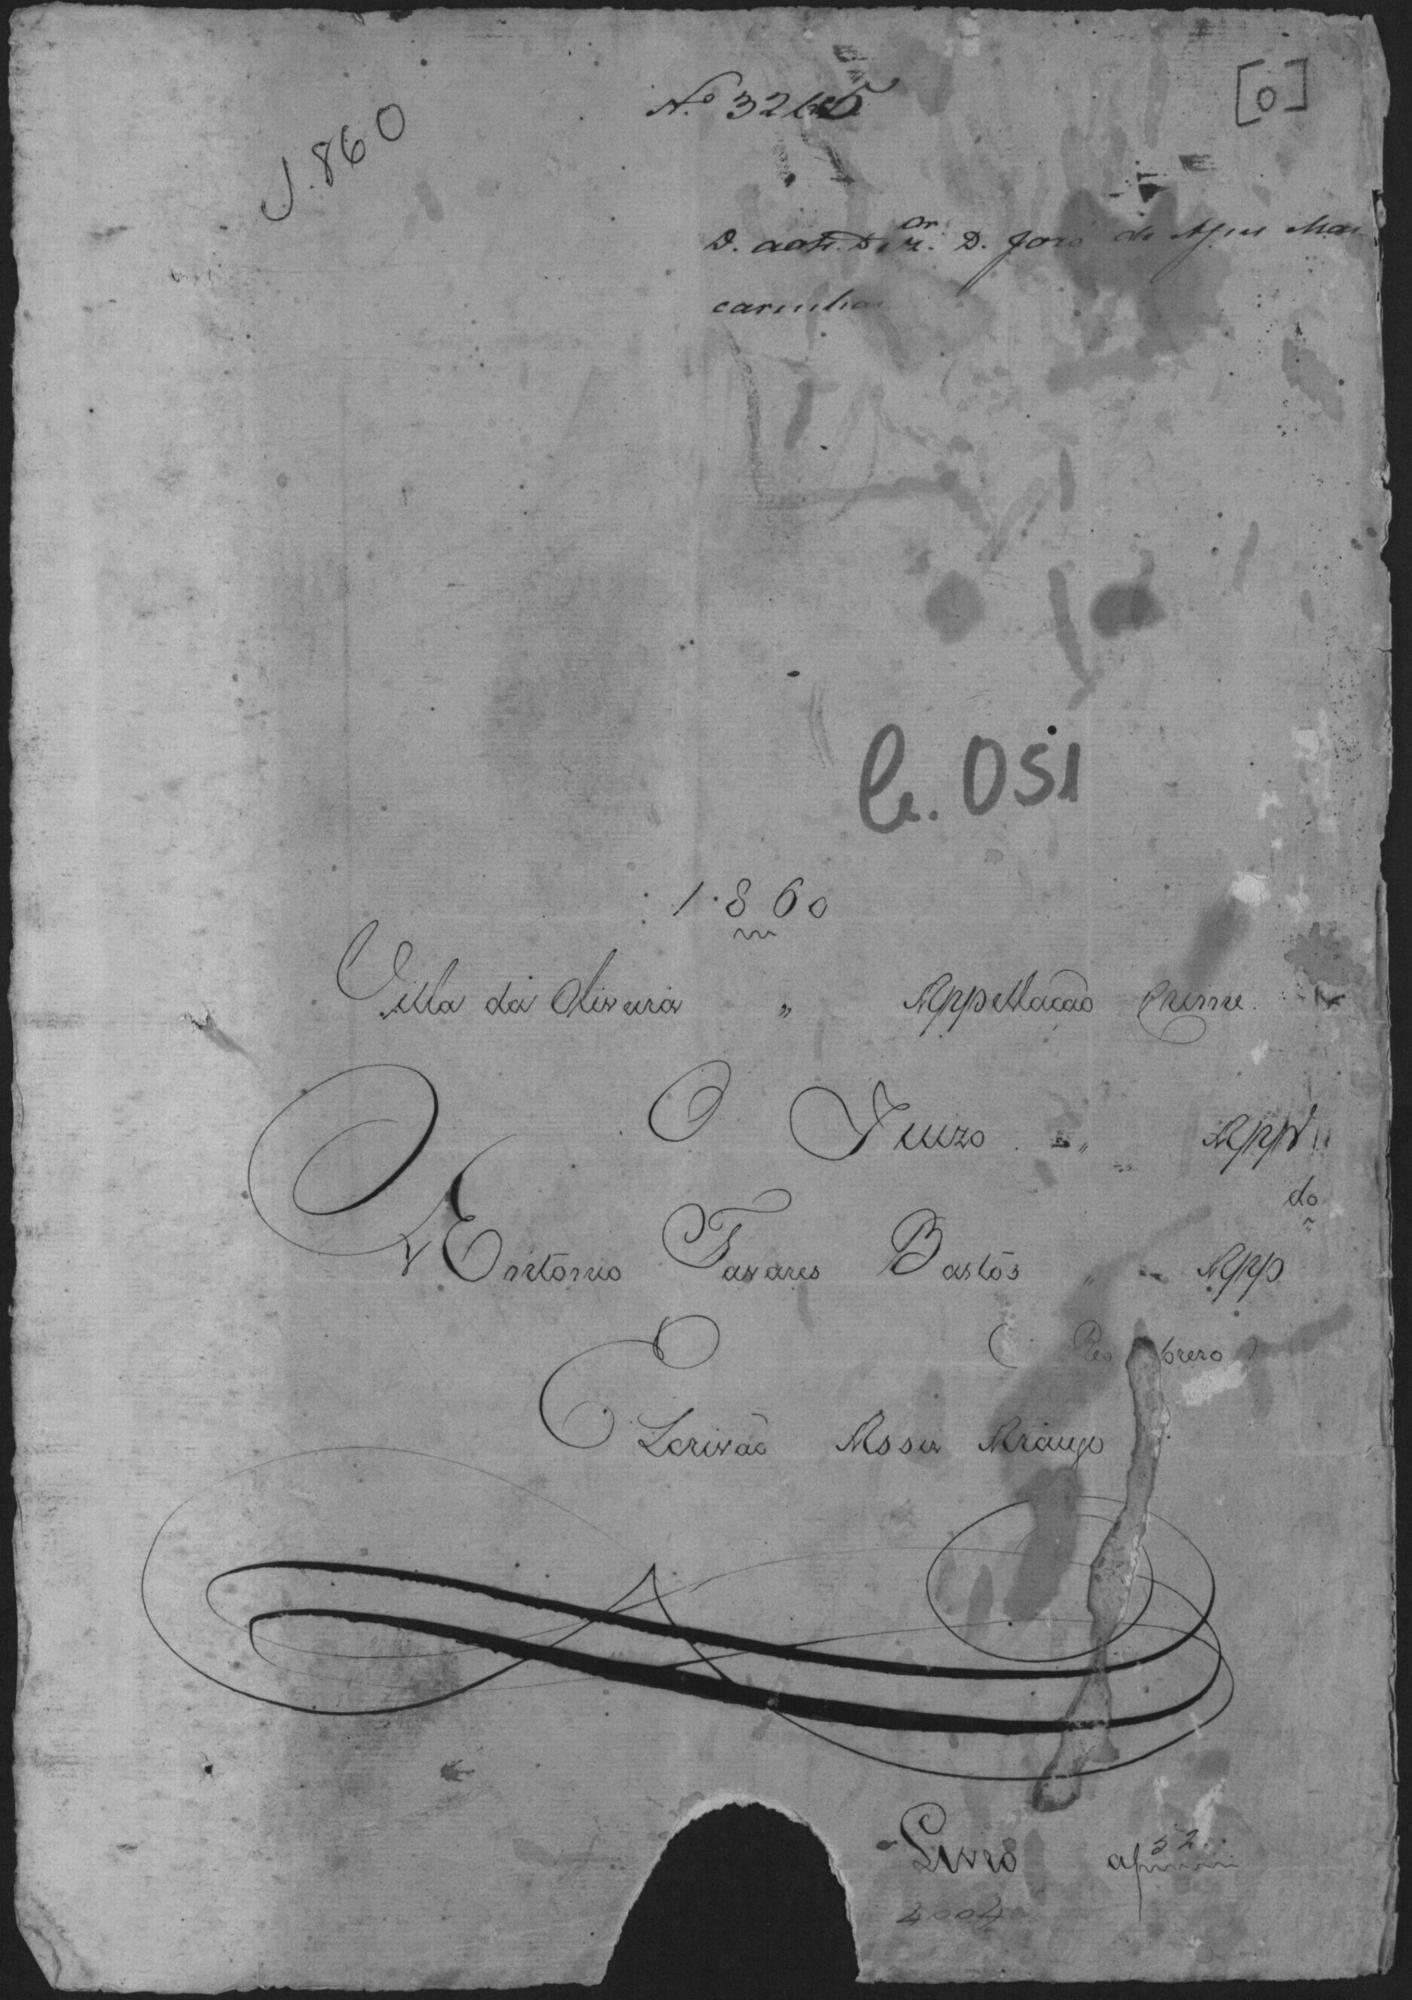 [0]
1.860
Nº 3245
D. ao Sr. Dr. D. José de Assis Mas
carenhas
Cr. 051
1.860
Villa da Oliveira " Appellação Crime.
O Juizo " App
Antonio Tavares Bastos " App do
( Reo )
Escrivão Assis Araujo
Livro af 52
4004